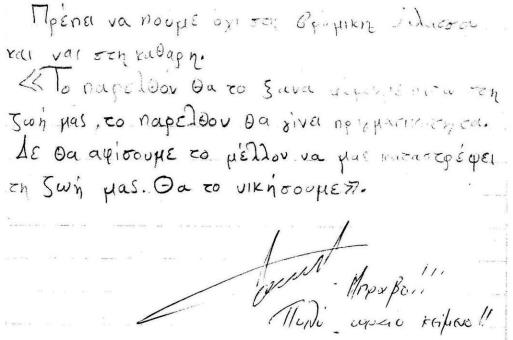 Πρέπει να πουμε όχι στη βρόμικη θάλασσα
και ναι στη καθαρη.
«Το παρελθόν θα το ξανα στη
ζωή μας, το παρελθον θα γίνει πραγματικότητα.
Δε θα αφίσουμε το μέλλον να μας καταστρέψει
τη ζωή μας. Θα το νικήσουμε».
Μπράβο!!!
Πολύ ωραίο κείμενο!!